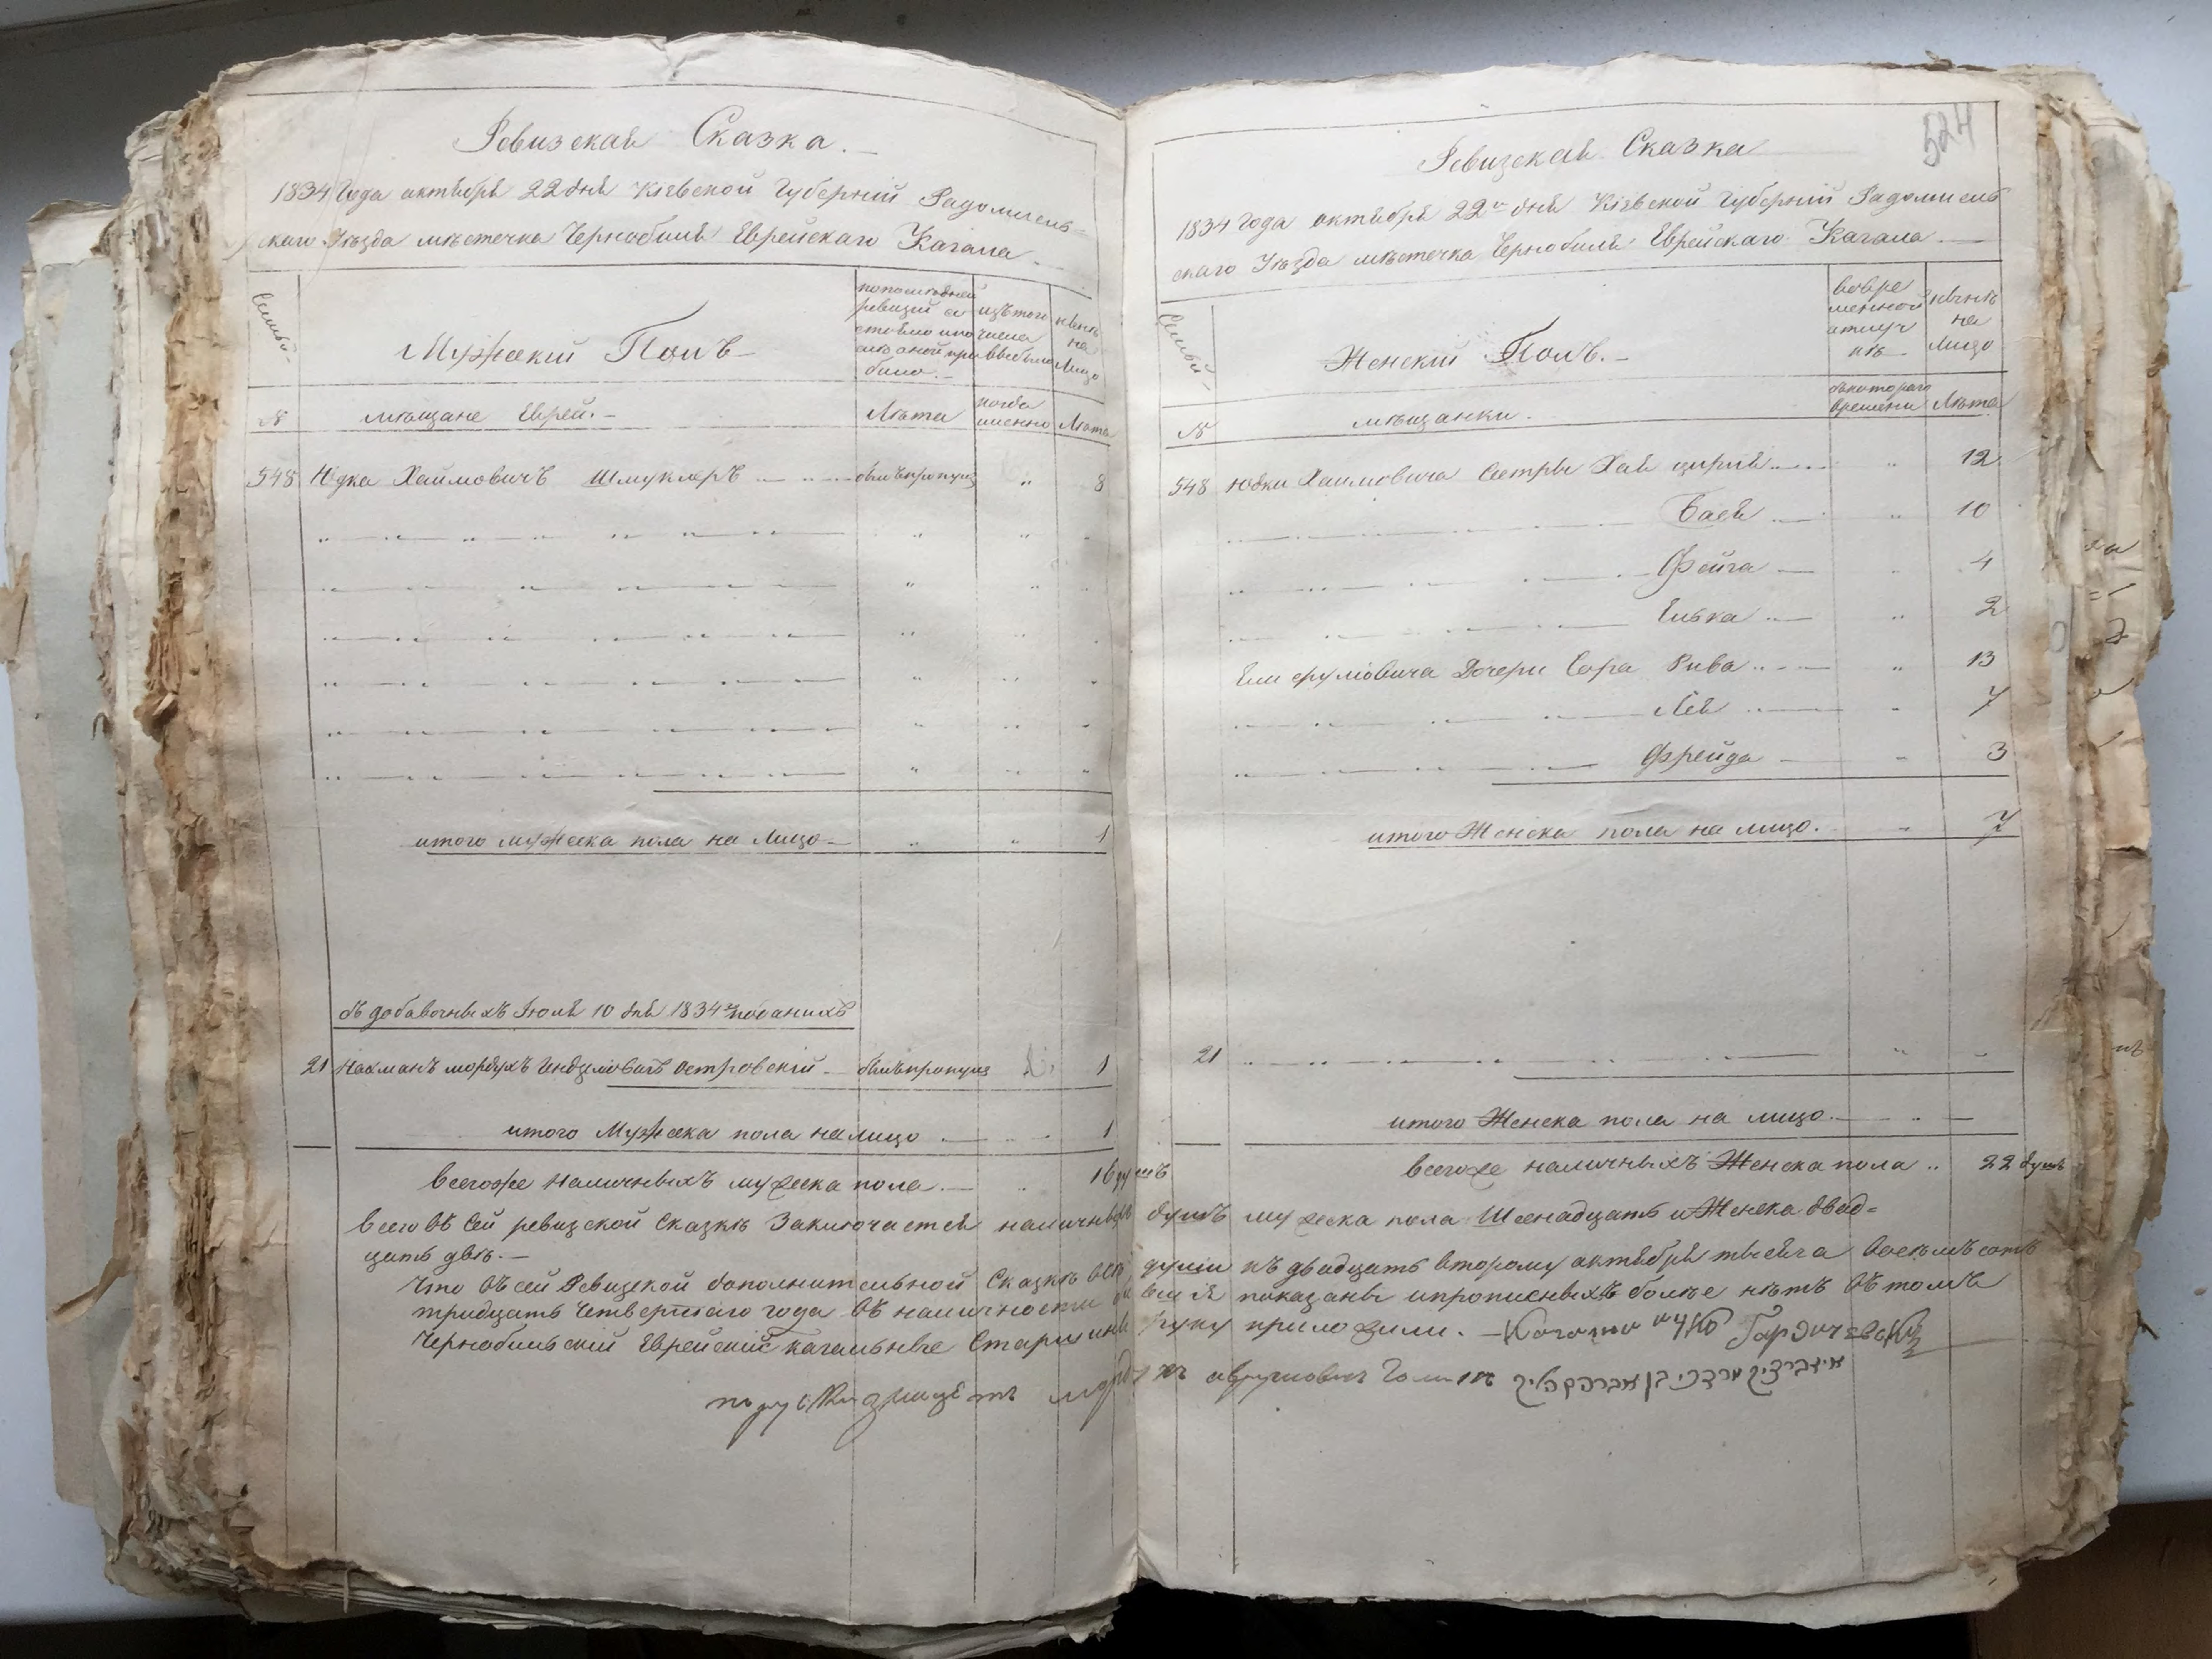 Ревизская Сказка.
1834 года октября 22 дня Кіевской Губерніи Радомисль-
скаго Уѣзда мѣстечка Чернобиля Еврейскаго Кагала.
Семьи
Мужескій Полъ
по последней ревизіи состояло и после оной прибыло.
изъ того числа выбыло
нынѣ на Лицо
№
мѣщане Евреи.
Лѣта
когда именно
Лѣта
548 Юдка Хаимовичъ Шмуклеръ былъ пропущ 8
итого мужеска пола на Лицо 1
въ добавочныхъ Іюля 10 дня 1834 г поданихъ
21 Нахманъ мордухъ Островскій былъ пропущ 1
итого Мужеска пола на лицо 1
всего же наличныхъ мужеска пола 16 душъ
524
Ревизская Сказка
1834 года октября 22 дня Кіевской Губерніи Радомисль
скаго Уѣзда мѣстечка Чернобиля Еврейскаго Кагала
Семьи
Женскій Полъ.
во временной отлучкѣ
нынѣ на Лицо
№
мѣщанки.
съ котораго времени
Лѣта
548 Юдки Хаимовича Сестры Хая 12
Бася 10
Фейга 4
Елька 2
Дочери Сора Рива 13
Лея 7
Фрейда 3
итого Женска пола на лицо. 7
21
итого Женска пола на лицо.
всего же наличныхъ Женска пола 22 душъ
всего въ сей ревизской Сказкѣ Заключается наличныхъ душъ мужеска пола Шеснадцать и Женска двад=
цать двѣ.
Что въ сей Ревизской дополнительной Сказкѣ всѣ души къ двадцать второму октября тысяча восемъ сотъ
тридцать Четвертаго года въ наличности показаны и прописныхъ болѣе нѣтъ въ томъ
Чернобильскій Еврейскій кагальные Старшины руку приложили.